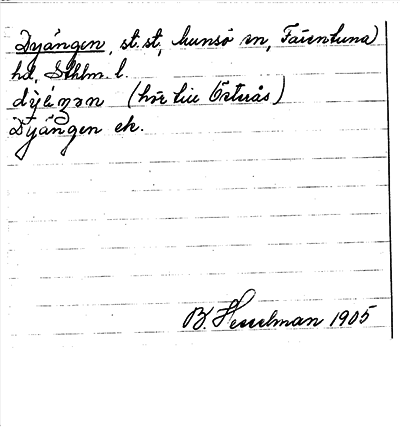 Dyängen, st. st, Munsö sn, Färentuna
hd, Sthlm. l.
dỳéŋən (hör till Österås)
Dyängen ek.
B. Hesselman 1905